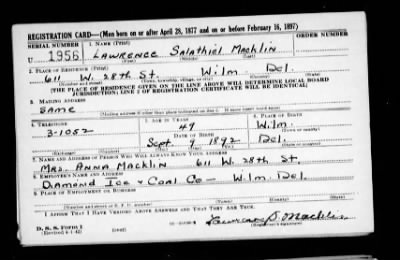 REGISTRATION CARD—(Men born on or after April 28, 1877 and on or before February 16, 1897)
SERIAL NUMBER 1. NAME (Print) ORDER NUMBER
U 1956 LAWRENCE Salathiel Macklin
(First) (Middle) (Last)
2. PLACE OF RESIDENCE (Print)
611 W. 28th St. Wilm. Del.
(Number and street) (Town, township, village, or city) (County) (State)
[THE PLACE OF RESIDENCE GIVEN ON THE LINE ABOVE WILL DETERMINE LOCAL BOARD
JURISDICTION; LINE 2 OF REGISTRATION CERTIFICATE WILL BE IDENTICAL]
3. MAILING ADDRESS
SAME
[Mailing address if other than place indicated on line 2. If same insert word same]
4. TELEPHONE 5. AGE IN YEARS 6. PLACE OF BIRTH
3-1052 49 Wilm.
DATE OF BIRTH (Town or county)
Sept. 9 1892 Del.
(Exchange) (Number) (Mo.) (Day) (Yr.) (State or country)
7. NAME AND ADDRESS OF PERSON WHO WILL ALWAYS KNOW YOUR ADDRESS
Mrs. Anna Macklin 611 W. 28th St.
8. EMPLOYER'S NAME AND ADDRESS
Diamond Ice & Coal Co — Wilm. Del.
9. PLACE OF EMPLOYMENT OR BUSINESS
(Number and street or R. F. D. number) (Town) (County) (State)
I AFFIRM THAT I HAVE VERIFIED ABOVE ANSWERS AND THAT THEY ARE TRUE.
D. S. S. Form 1 Lawrence S. Macklin
(Revised 4-1-42) (over) (Registrant's signature)